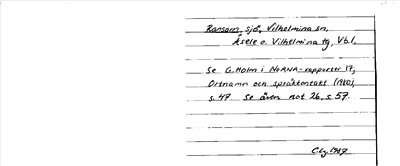 Ransarn, sjö, Vilhelmina sn,
Åsele o. Vilhelmina tg, Vb.l.
Se G. Holm i NORNA-rapporter 17,
Ortnamn och språkkontakt (1980),
s. 47. Se även not 26, s. 57.
1987